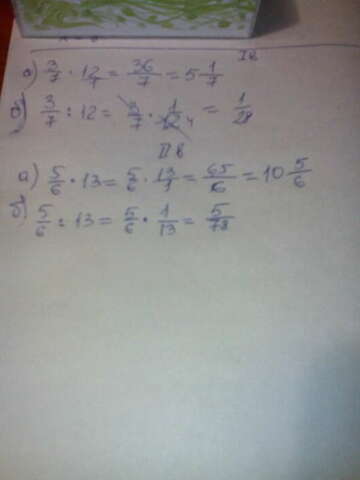 I в
а) 3/7 · 12/7 = 36/7 = 5 1/7
б) 3/7 : 12 = 3/7 · 1/12 4 = 1/28
II в
а) 5/6 · 13 = 5/6 · 13/1 = 65/6 = 10 5/6
б) 5/6 : 13 = 5/6 · 1/13 = 5/78